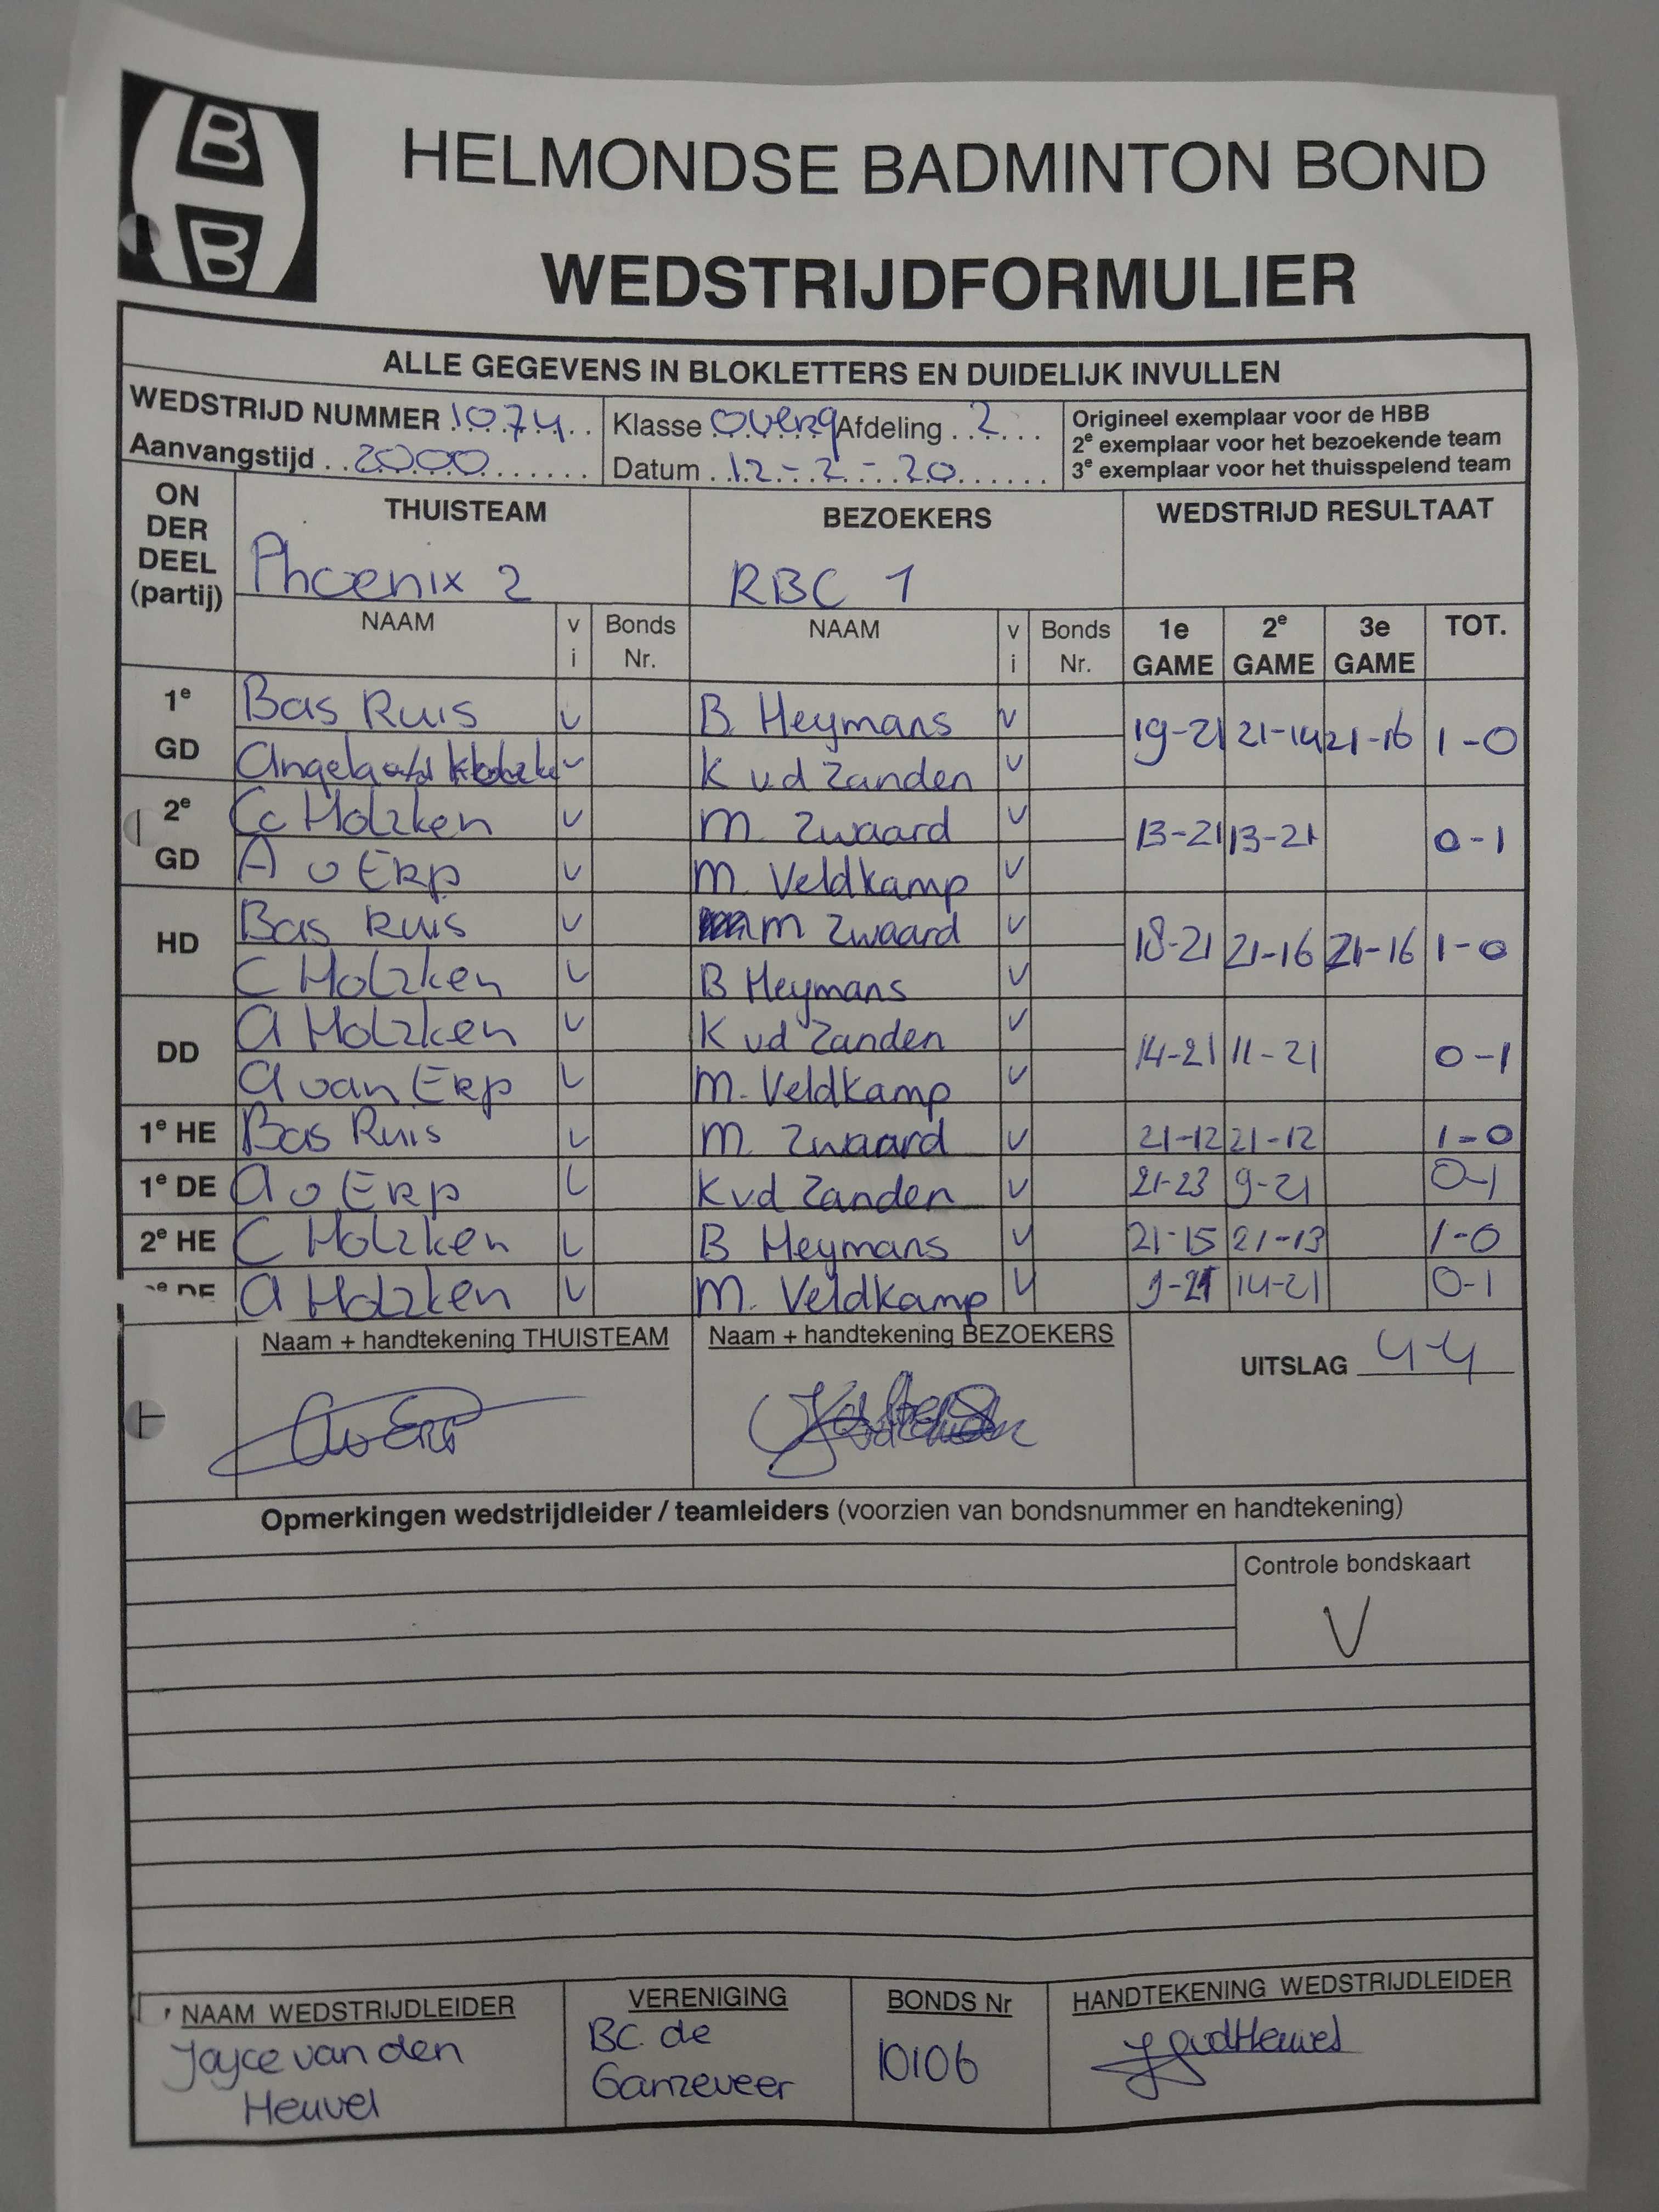 B
B
HELMONDSE BADMINTON BOND
WEDSTRIJDFORMULIER
ALLE GEGEVENS IN BLOKLETTERS EN DUIDELIJK INVULLEN
WEDSTRIJD NUMMER 1074 Klasse Overg Afdeling 2 Origineel exemplaar voor de HBB
2e exemplaar voor het bezoekende team
Aanvangstijd 20.00 Datum 12-2-20 3e exemplaar voor het thuisspelend team
ON DER DEEL (partij) THUISTEAM BEZOEKERS WEDSTRIJD RESULTAAT
Phoenix 2 RBC 1
NAAM v i Bonds Nr. NAAM v i Bonds Nr. 1e GAME 2e GAME 3e GAME TOT.
1e GD Bas Ruis v B. Heymans v 19-21 21-14 21-16 1-0
Angela v K vd Zanden v
2e GD C Holzken v M. Zwaard v 13-21 13-21 0-1
A v Erp v M. Veldkamp v
HD Bas Ruis v M Zwaard v 18-21 21-16 21-16 1-0
C Holzken v B Heymans v
DD A Holzken v K vd Zanden v 14-21 11-21 0-1
A van Erp v M. Veldkamp v
1e HE Bas Ruis v M. Zwaard v 21-12 21-12 1-0
1e DE A v Erp v K vd Zanden v 21-23 9-21 0-1
2e HE C Holzken v B Heymans v 21-15 21-13 1-0
DE A Holzken v M. Veldkamp v 9-21 14-21 0-1
Naam + handtekening THUISTEAM Naam + handtekening BEZOEKERS UITSLAG 4-4
Opmerkingen wedstrijdleider / teamleiders (voorzien van bondsnummer en handtekening)
Controle bondskaart
V
NAAM WEDSTRIJDLEIDER VERENIGING BONDS Nr HANDTEKENING WEDSTRIJDLEIDER
Joyce van den Heuvel BC. de Ganzeveer 10106 JvdHeuvel